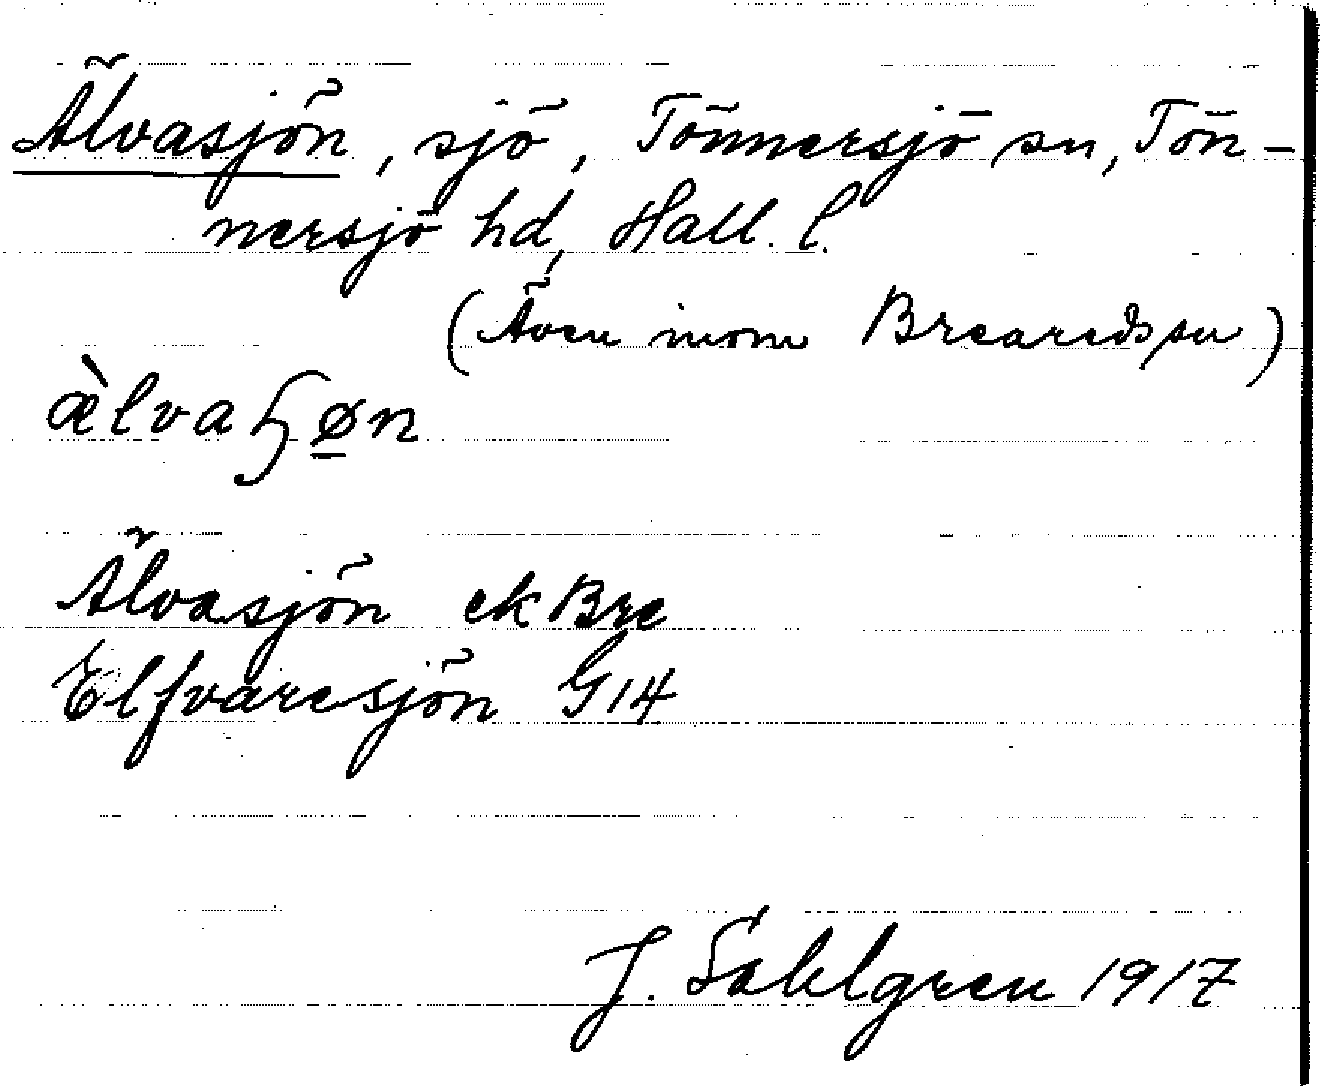 Älvasjön, sjö, Tönnersjö sn, Tön-
nersjö hd, Hall. l.
(Även inom Breareds sn)
æ̀lvaɧø̲n
Älvasjön ek Bre
Elfvaresjön G14
J. Sahlgren 1917